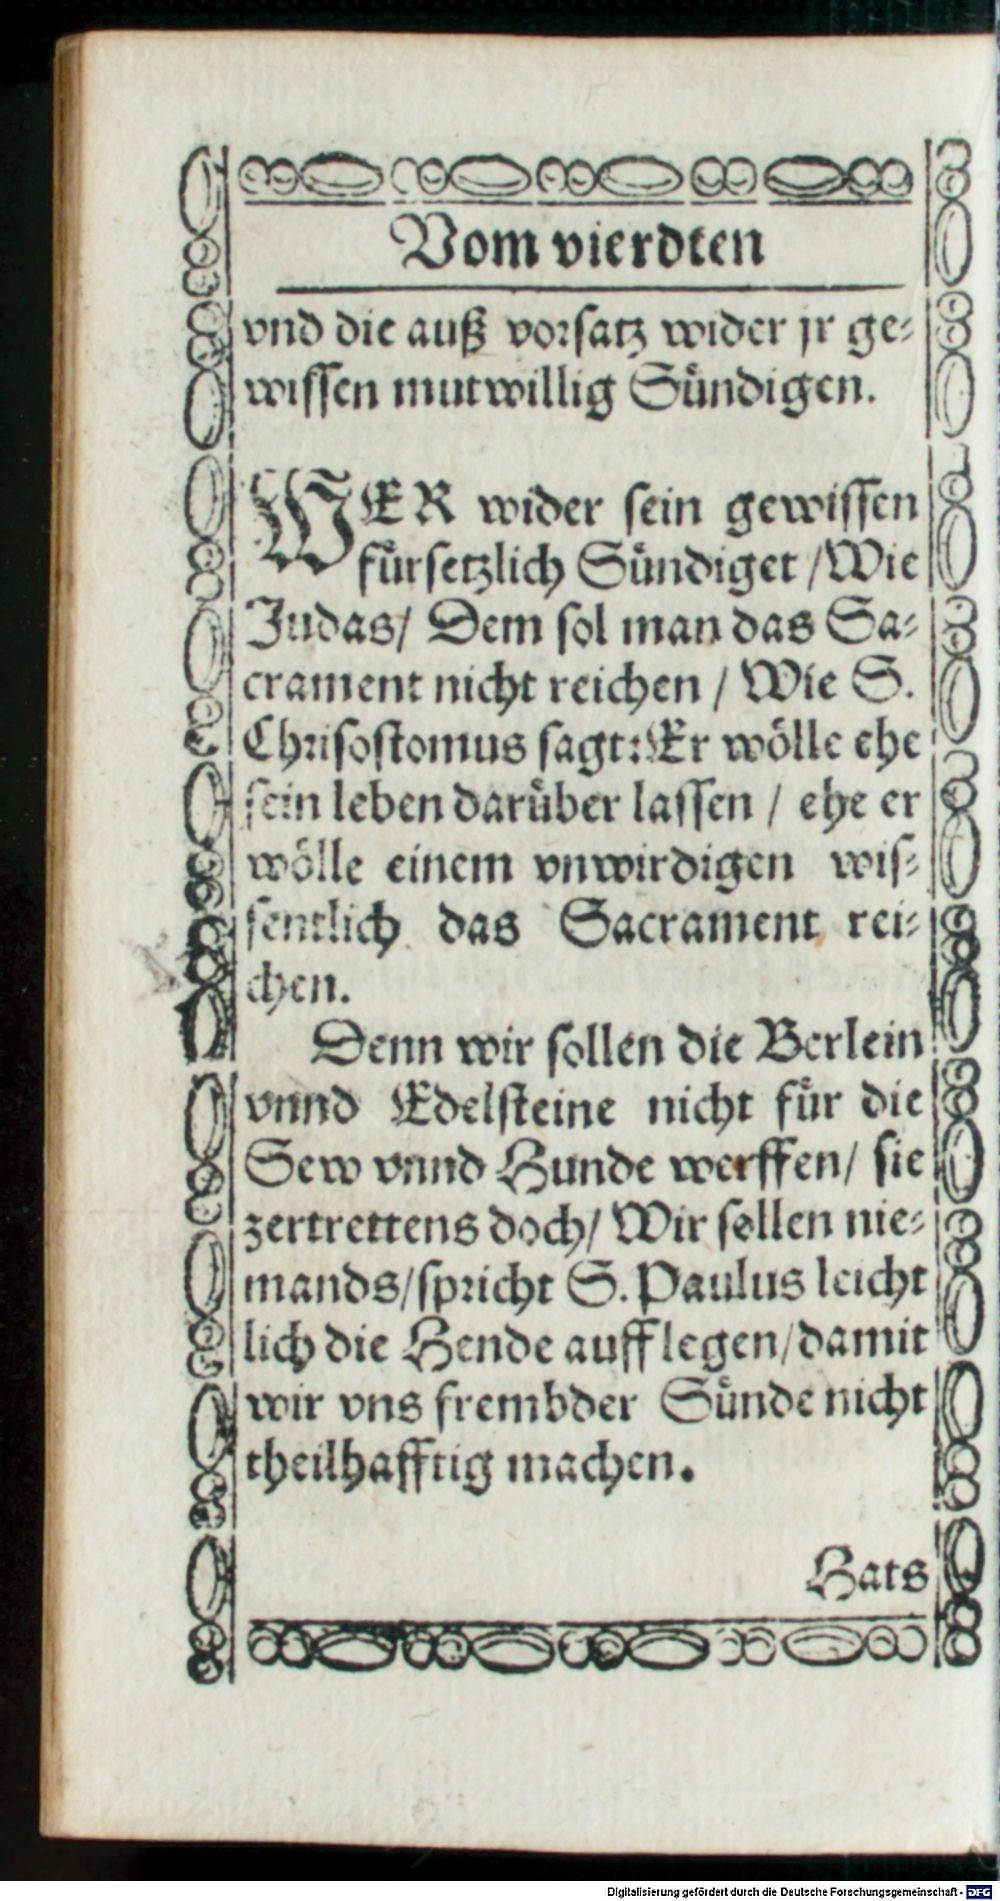 Vom vierdten
vnd die auß vorsatz wider jr ge-
wissen mutwillig Sündigen.
WER wider sein gewissen
fürsetzlich Sündiget / Wie
Judas / Dem sol man das Sa-
crament nicht reichen / Wie S.
Chrisostomus sagt: Er wölle ehe
sein leben darüber lassen / ehe er
wölle einem vnwirdigen wis-
sentlich das Sacrament rei-
chen.
Denn wir sollen die Berlein
vnnd Edelsteine nicht für die
Sew vnnd Hunde werffen / sie
zertrettens doch / Wir sollen nie-
mands / spricht S. Paulus leicht
lich die Hende auff legen / damit
wir vns frembder Sünde nicht
theilhafftig machen.
Hats
Digitalisierung gefördert durch die Deutsche Forschungsgemeinschaft - DFG